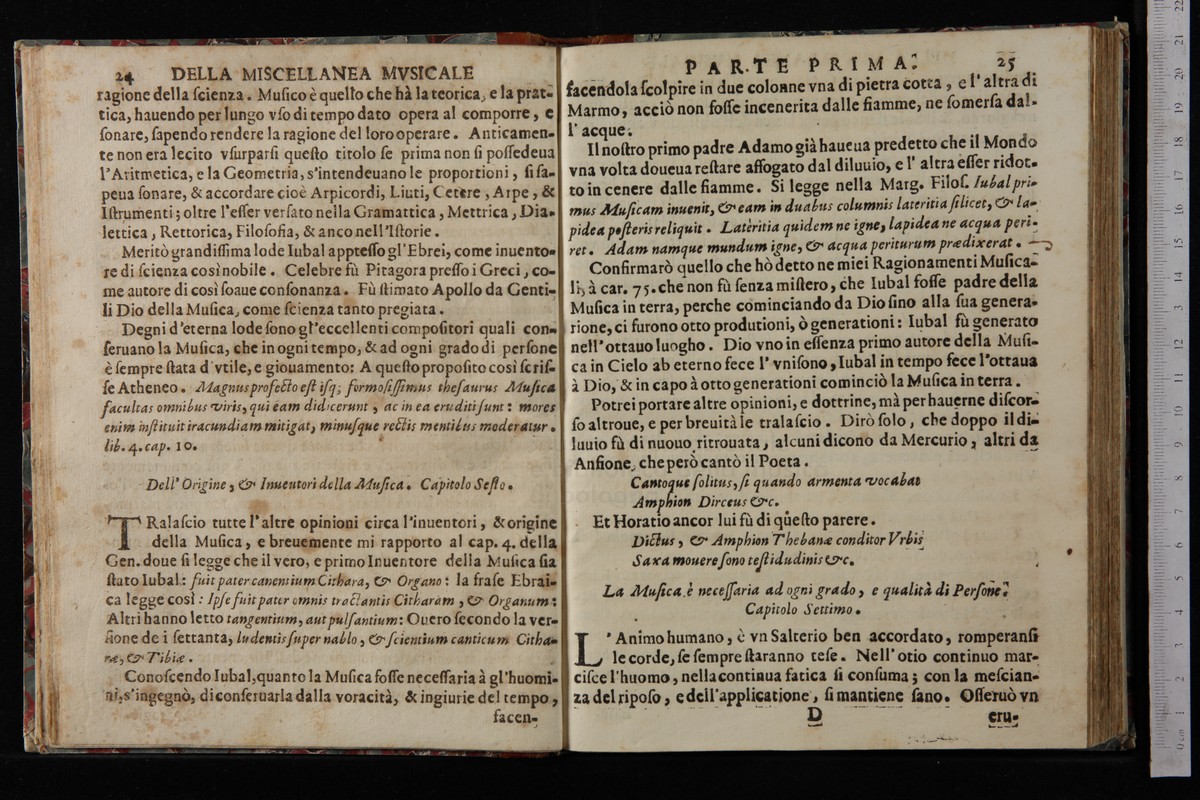 24 DELLA MISCELLANEA MVSICALE
ragione della ſcienza. Muſico è quello che hà la teorica, e la prat-
tica, hauendo per lungo vſo di tempo dato opera al comporre, e
ſonare, ſapendo rendere la ragione del loro operare. Anticamen-
te non era lecito vſurparſi queſto titolo ſe prima non ſi poſſedeua
l'Aritmetica, e la Geometria, s'intendeuano le proportioni, ſi ſa-
peua ſonare, & accordare cioè Arpicordi, Liuti, Cetere, Arpe, &
Iſtrumenti; oltre l'eſſer verſato nella Gramattica, Mettrica, Dia-
lettica, Rettorica, Filoſofia, & anco nell'Iſtorie.
Meritò grandiſſima lode Iubal appreſſo gl'Ebrei, come inuento-
re di ſcienza così nobile. Celebre fù Pitagora preſſo i Greci, co-
me autore di così ſoaue conſonanza. Fù ſtimato Apollo da Genti-
li Dio della Muſica, come ſcienza tanto pregiata.
Degni d'eterna lode ſono gl'eccellenti compoſitori quali con-
ſeruano la Muſica, che in ogni tempo, & ad ogni grado di perſone
è ſempre ſtata d'vtile, e giouamento: A queſto propoſito così ſcriſ-
ſe Atheneo. Magnus profecto eſt iſq; formoſiſſimus theſaurus Muſica
facultas omnibus viris, qui eam didicerunt, ac in ea eruditi ſunt: mores
enim inſtituit iracundiam mitigat, minuſque rectis mentibus moderatur.
lib. 4. cap. 10.
Dell'Origine, & Inuentori della Muſica. Capitolo Seſto.
TRalaſcio tutte l'altre opinioni circa l'inuentori, & origine
della Muſica, e breuemente mi rapporto al cap. 4. della
Gen. doue ſi legge che il vero, e primo Inuentore della Muſica ſia
ſtato Iubal: fuit pater canentium Cithara, & Organo: la fraſe Ebrai-
ca legge così: Ipſe fuit pater omnis tractantis Citharam, & Organum:
Altri hanno letto tangentium, aut pulſantium: Ouero ſecondo la ver-
ſione de i ſettanta, ludentis ſuper nablo, & ſcientium canticum Citha-
ræ, & Tibiæ.
Conoſcendo Iubal, quanto la Muſica foſſe neceſſaria à gl'huomi-
ni, s'ingegnò, di conſeruarla dalla voracità, & ingiurie del tempo,
facen-
PARTE PRIMA. 25
facendola ſcolpire in due colonne vna di pietra cotta, e l'altra di
Marmo, acciò non foſſe incenerita dalle fiamme, ne ſomerſa dal-
l'acque.
Il noſtro primo padre Adamo già haueua predetto che il Mondo
vna volta doueua reſtare affogato dal diluuio, e l'altra eſſer ridot-
to in cenere dalle fiamme. Si legge nella Marg. Filoſ. Iubal pri-
mus Muſicam inuenit, & eam in duabus columnis lateritia ſilicet, & la-
pidea poſteris reliquit. Lateritia quidem ne igne, lapidea ne acqua peri-
ret. Adam namque mundum igne, & acqua periturum prædixerat.
Confirmarò quello che hò detto ne miei Ragionamenti Muſica-
li, à car. 75. che non fù ſenza miſtero, che Iubal foſſe padre della
Muſica in terra, perche cominciando da Dio ſino alla ſua genera-
rione, ci furono otto produtioni, ò generationi: Iubal fù generato
nell'ottauo luogho. Dio vno in eſſenza primo autore della Muſi-
ca in Cielo ab eterno fece l'vniſono, Iubal in tempo fece l'ottaua
à Dio, & in capo à otto generationi cominciò la Muſica in terra.
Potrei portare altre opinioni, e dottrine, mà per hauerne diſcor-
ſo altroue, e per breuità le tralaſcio. Dirò ſolo, che doppo il di-
luuio fù di nuouo ritrouata, alcuni dicono da Mercurio, altri da
Anfione, che però cantò il Poeta.
Cantoque ſolitus, ſi quando armenta vocabat
Amphion Dirceus &c.
Et Horatio ancor lui fù di queſto parere.
Dictus, & Amphion Thebanæ conditor Vrbis
Saxa mouere ſono teſtidudinis &c.
La Muſica è neceſſaria ad ogni grado, e qualità di Perſone.
Capitolo Settimo.
L'Animo humano, è vn Salterio ben accordato, romperanſi
le corde, ſe ſempre ſtaranno teſe. Nell'otio continuo mar-
ciſce l'huomo, nella continua fatica ſi conſuma; con la meſcian-
za del ripoſo, e dell'applicatione, ſi mantiene ſano. Oſſeruò vn
D eru-